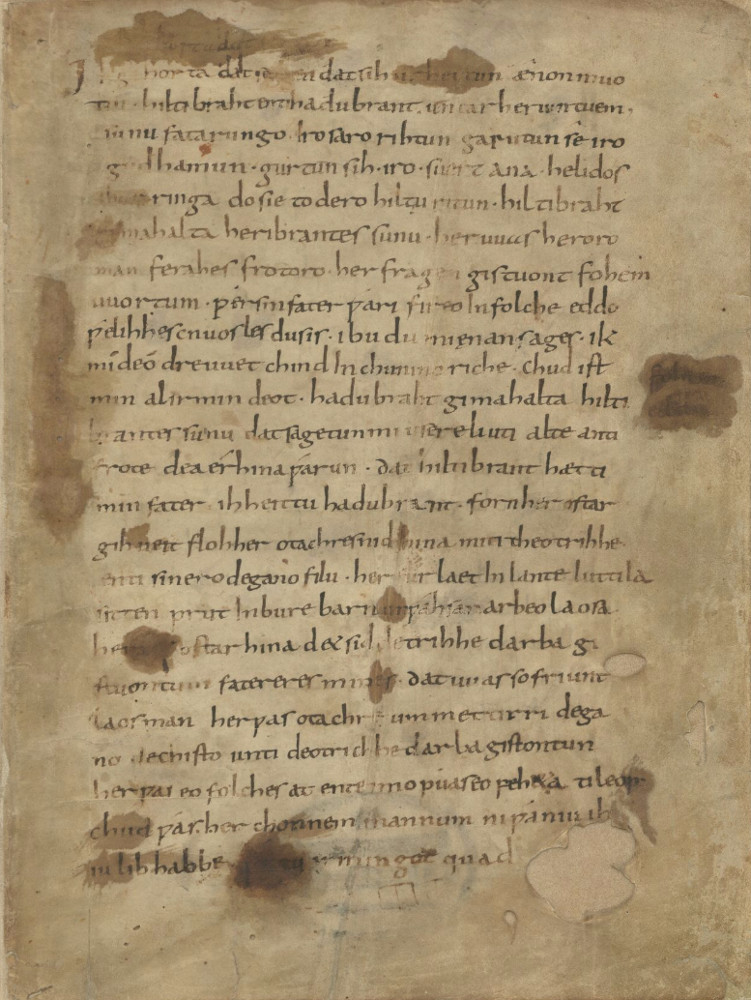 horta dat dat sih ænon muo
tin · hiltibraht enti hadubrant · untar heriun tuem ·
sunu fatarungo · iro saro rihtun garutun se iro
gudhamun · gurtun sih · iro · suert ana · helidos
ringa do sie to dero hiltu ritun · hiltibraht
gimahalta heribrantes sunu · her uuas heroro
man ferahes frotoro · her fragen gistuont fohem
uuortum · ƿer sin fater ƿari fireo In folche eddo
ƿelihhes cnuosles du sis · ibu du mi ęnan sages · ik
mi deo dre uuet chind In chunincriche · chud ist
min al irmin deot · hadubraht gimahalta hilti
brantes sunu dat sagetun mi usere liuti alte anti
frote dea erhina ƿarun · dat hiltibrant hætti
min fater · ih heittu hadubrant · forn her ostar
gihueit floh her otachres nid hina miti theotrihhe ·
enti sinero degano filu · her furlaet In lante luttila
sitten prut In bure barn unƿahsan arbeo laosa ·
ostar hina det sid detrihhe darba gi
stuontun fatereres mines · dat uuas so friunt
laos man her ƿas otachre ummettirri dega
no dechisto unti deotrichhe darba gistontun
her ƿas eo folches at ente imo ƿuas eo ƿeheta ti leop
chud ƿas her chonnem mannum ni ƿaniu ih
iu lib habbe irmingot quad